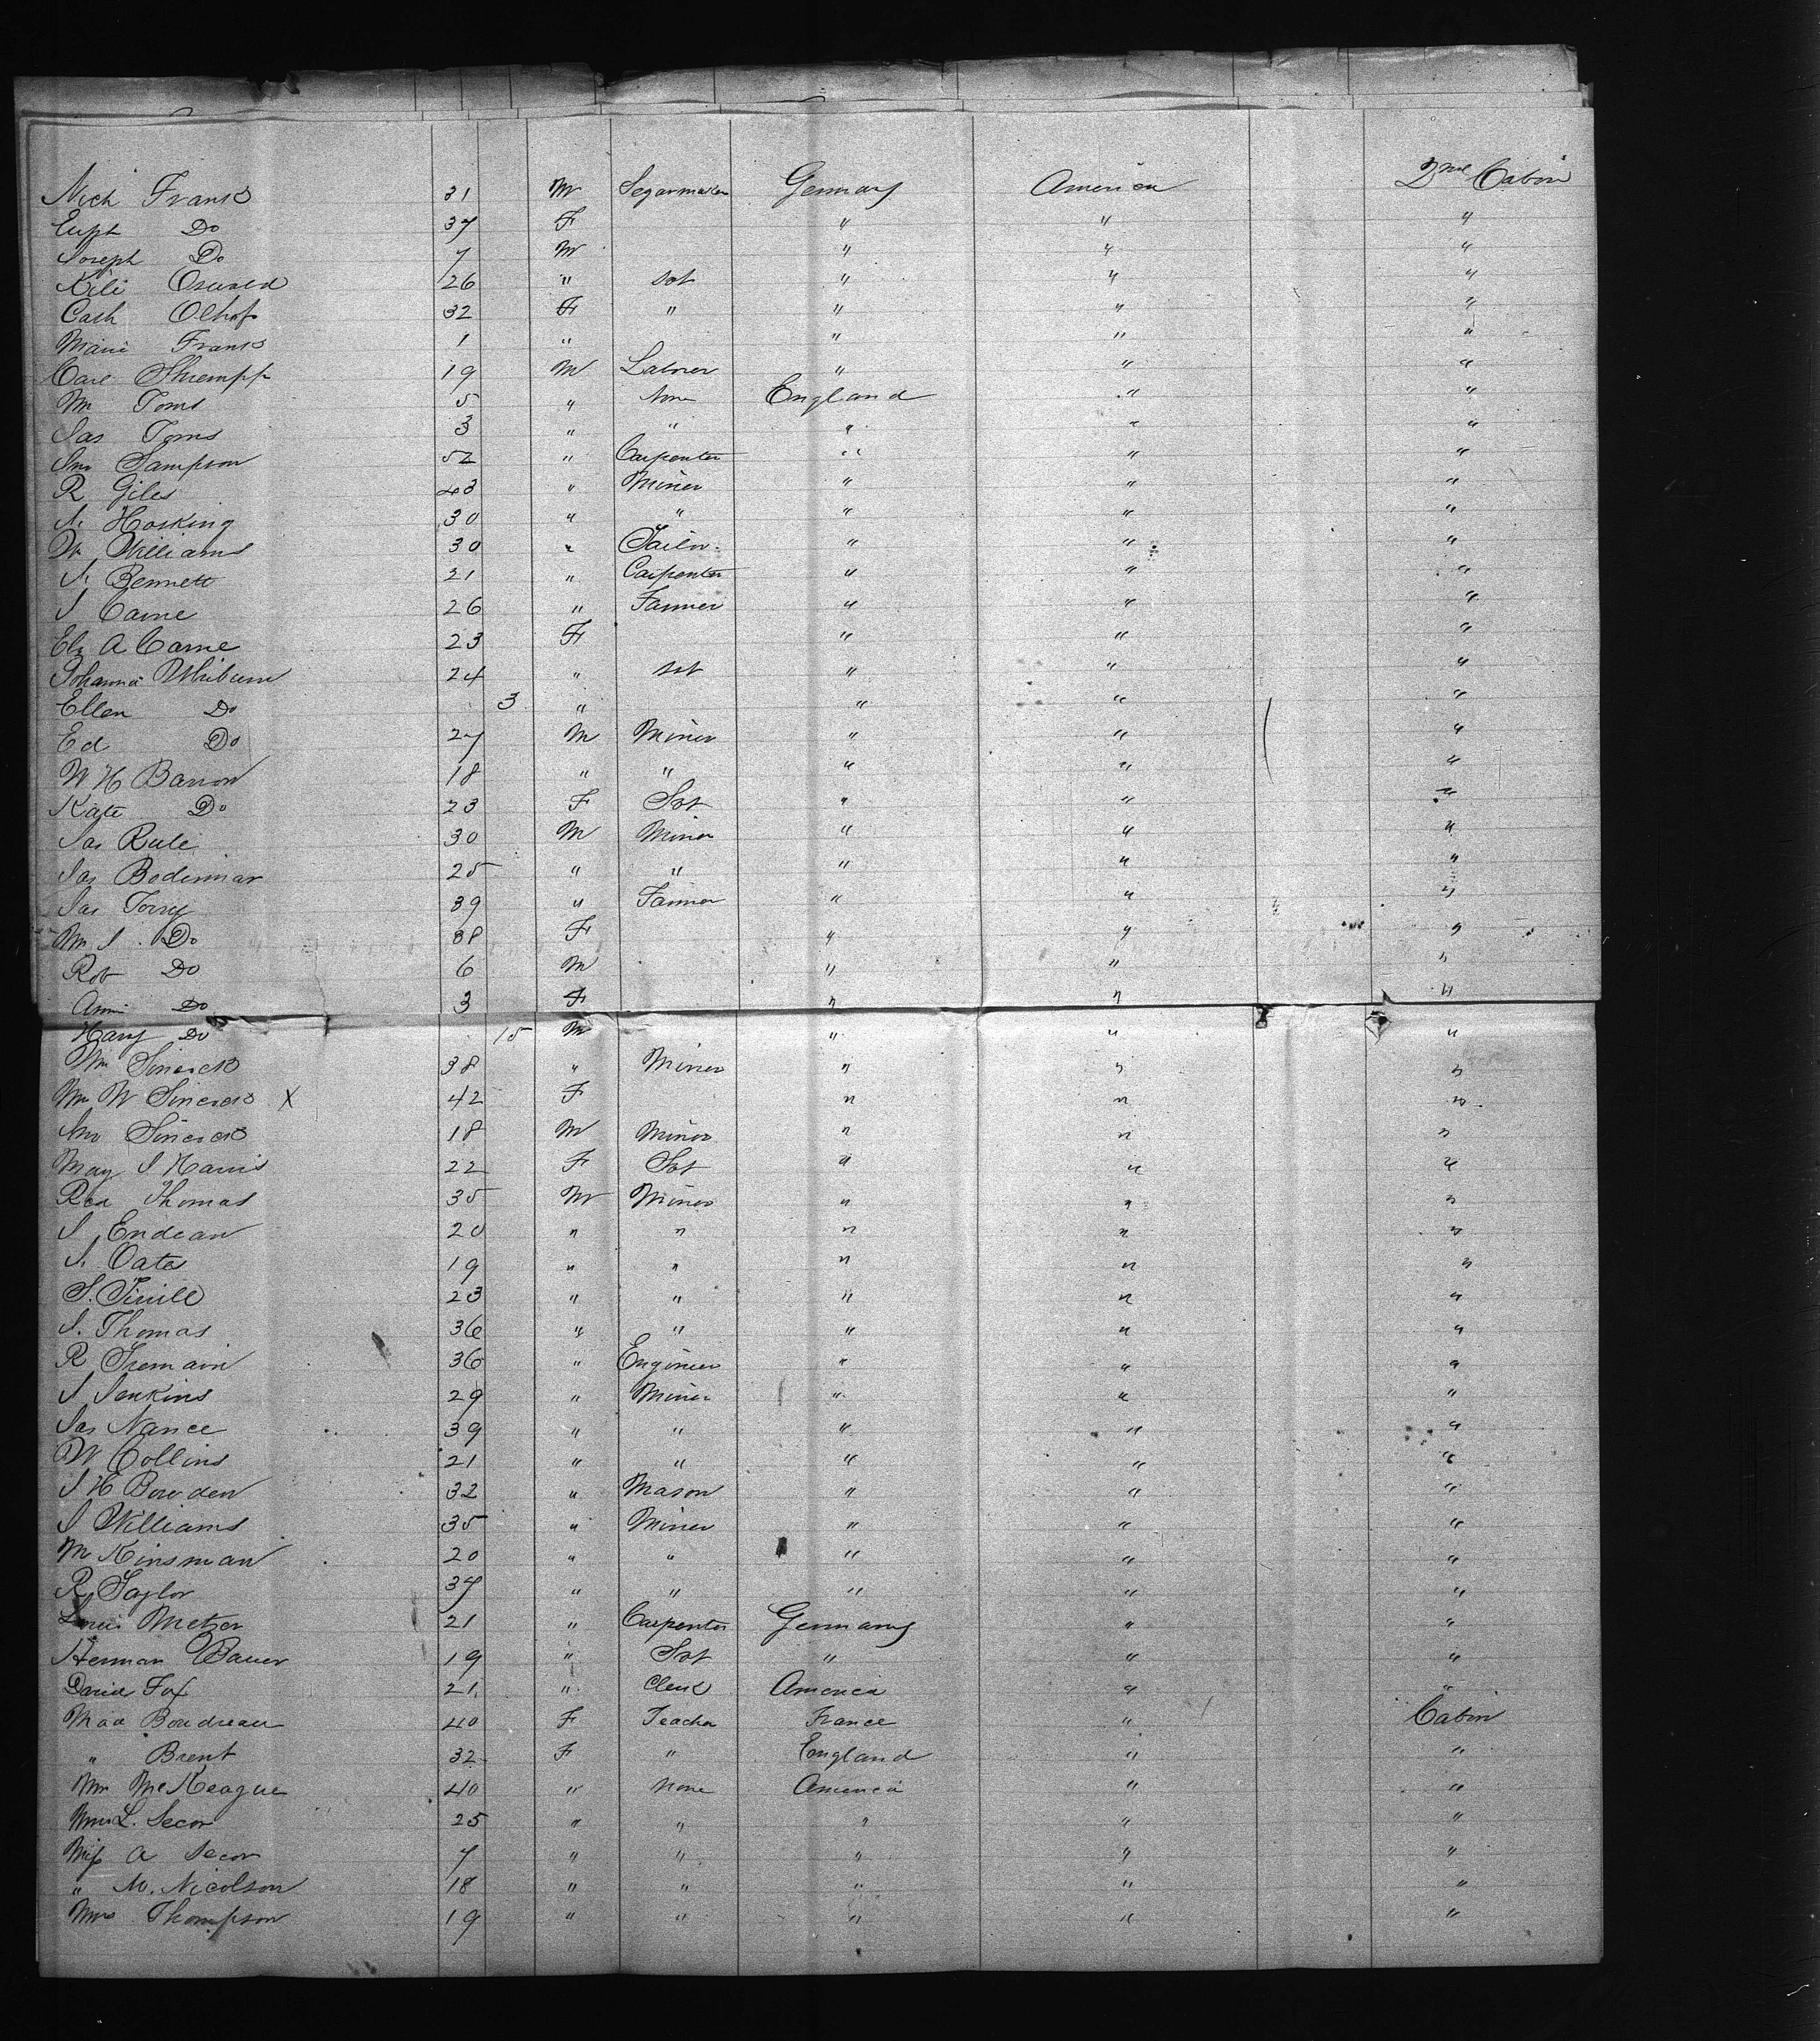 Nich Franks 31 M Segarmaker Germany America 2nd Cabin
Euph Do 37 F " " "
Joseph Do 7 M " " "
Kili Oswald 26 " svt " " "
Cath Olhof 32 F " " " "
Marie Franks 1 " " " "
Carl Shrempp 19 M Laborer " " "
Wm Toms 5 " None England " "
Jas Toms 3 " " " " "
Jno Sampson 52 " Carpenter " " "
R Giles 43 " Miner " " "
J. Hosking 30 " " " " "
W Williams 30 " Tailor " " "
J. Bennett 21 " Carpenter " " "
J Carne 26 " Farmer " " "
Elz A Carne 23 F " " "
Johanna Whiburn 24 " svt " " "
Ellen Do 3 " " " "
Ed Do 27 M Miner " " "
W H Barron 18 " " " " "
Kate Do 23 F Svt " " "
Jas Rule 30 M Miner " " "
Jas Bodinnar 25 " " " " "
Jas Torry 39 " Farmer " " "
Mrs J. Do 38 F " " "
Rob Do 6 M " " "
Anni Do 3 F " " "
Harry Do 15 M " " "
Wm 38 " Miner " " "
Mrs W X 42 F " " "
Jno 18 M Miner " " "
May J Harris 22 F Svt " " "
Rd Thomas 35 M Miner " " "
J Endean 20 " " " " "
J. Oates 19 " " " " "
S. 23 " " " " "
J. Thomas 36 " " " " "
R Tremain 36 " Engineer " " "
J Jenkins 29 " Miner " " "
Jas Nance 39 " " " " "
W Collins 21 " " " " "
J H Bowden 32 " Mason " " "
J Williams 35 " Miner " " "
M Kinsman 20 " " " " "
R Taylor 37 " " " " "
Louis Metzer 21 " Carpenter Germany " "
Herman Bauer 19 " Svt " " "
David Fox 21 " Clerk America " "
Mad Boudreau 40 F Teacher France " Cabin
" Brent 32 F " England " "
Mrs McKeague 40 " None America " "
Mrs L. Secor 25 " " " " "
Miss A Secor 7 " " " " "
" M. Nicolson 18 " " " " "
Mrs Thompson 19 " " " " "